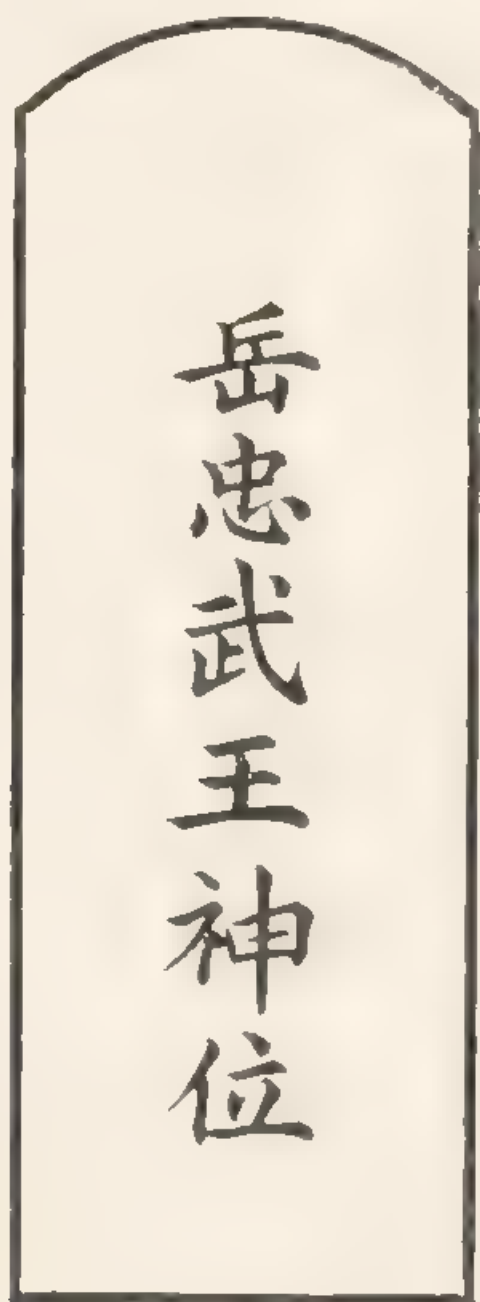 岳忠武王神位